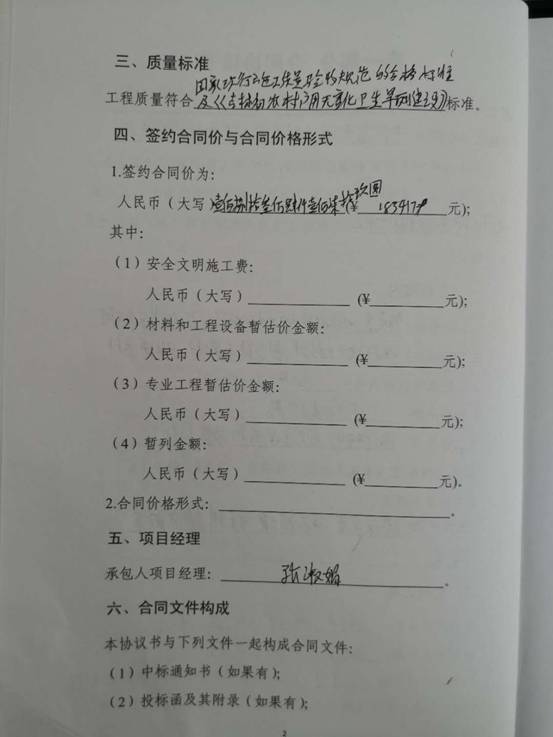 三、质量标准
国家现行工程质量验收规范的合格标准
工程质量符合及《吉林省农村户用无害化卫生旱厕标准。
四、签约合同价与合同价格形式
1.签约合同价为:
人民币（大写） (¥ 元);
其中:
（1）安全文明施工费:
人民币（大写） (¥ 元);
（2）材料和工程设备暂估价金额:
人民币（大写） (¥ 元);
（3）专业工程暂估价金额:
人民币（大写） (¥ 元);
（4）暂列金额:
人民币（大写） (¥ 元)。
2.合同价格形式: 。
五、项目经理
承包人项目经理: 张淑娟 。
六、合同文件构成
本协议书与下列文件一起构成合同文件:
（1）中标通知书（如果有);
（2）投标函及其附录（如果有);
2